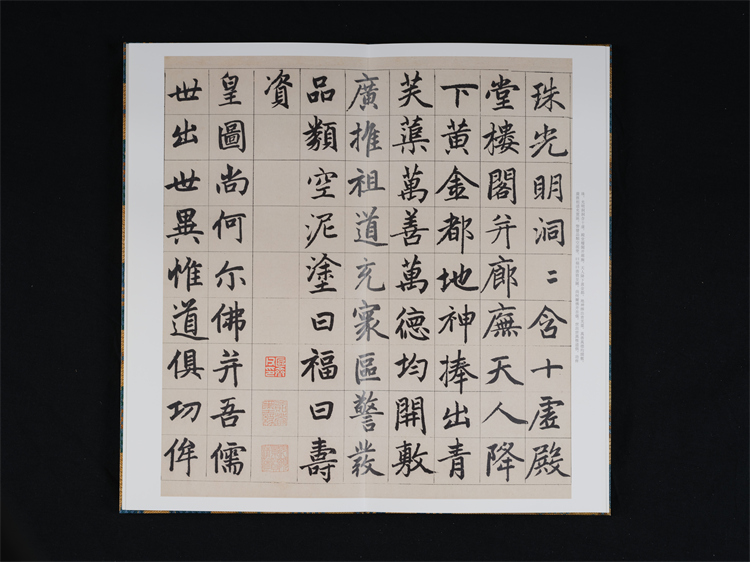 珠光明洞〻含十虛殿
堂樓閣并廊廡天人降
下黄金都地神捧出青
芙蕖萬善萬德均開敷
廣推祖道充寰區警發
品類空泥塗曰福曰壽
資
皇圖尚何尒佛并吾儒
世出世異惟道俱功侔